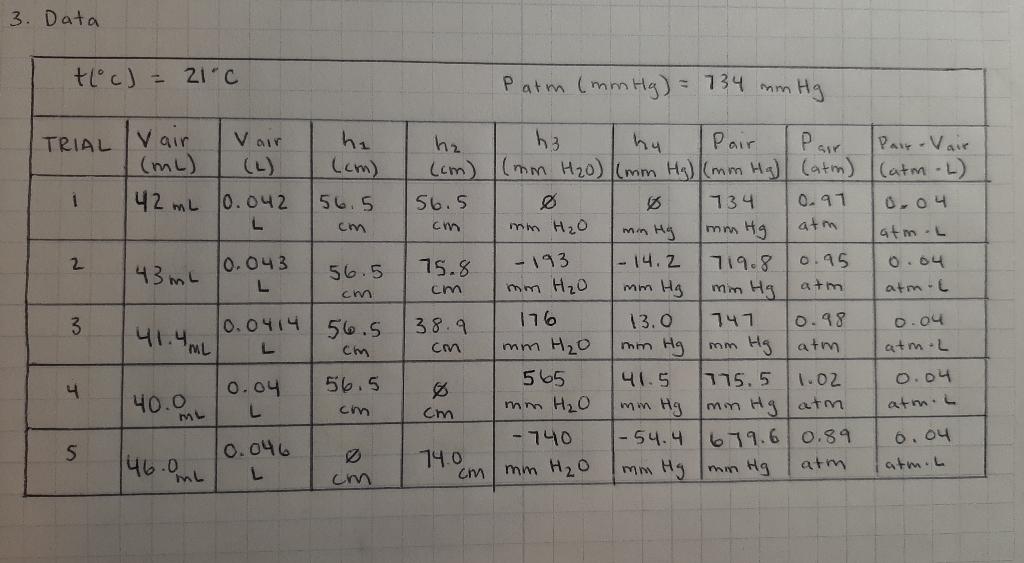 3. Data
t(°c) = 21°C P atm (mmHg) = 734 mm Hg
TRIAL V air (mL) V air (L) h1 (cm) h2 (cm) h3 (mm H2O) h4 (mm Hg) Pair (mm Hg) Pair (atm) Pair - Vair (atm · L)
1 42 mL 0.042 L 56.5 cm 56.5 cm Ø mm H2O Ø mm Hg 734 mm Hg 0.97 atm 0.04 atm · L
2 43 mL 0.043 L 56.5 cm 75.8 cm -193 mm H2O -14.2 mm Hg 719.8 mm Hg 0.95 atm 0.04 atm · L
3 41.4 mL 0.0414 L 56.5 cm 38.9 cm 176 mm H2O 13.0 mm Hg 747 mm Hg 0.98 atm 0.04 atm · L
4 40.0 mL 0.04 L 56.5 cm Ø cm 565 mm H2O 41.5 mm Hg 775.5 mm Hg 1.02 atm 0.04 atm · L
5 46.0 mL 0.046 L Ø cm 74.0 cm -740 mm H2O -54.4 mm Hg 679.6 mm Hg 0.89 atm 0.04 atm · L